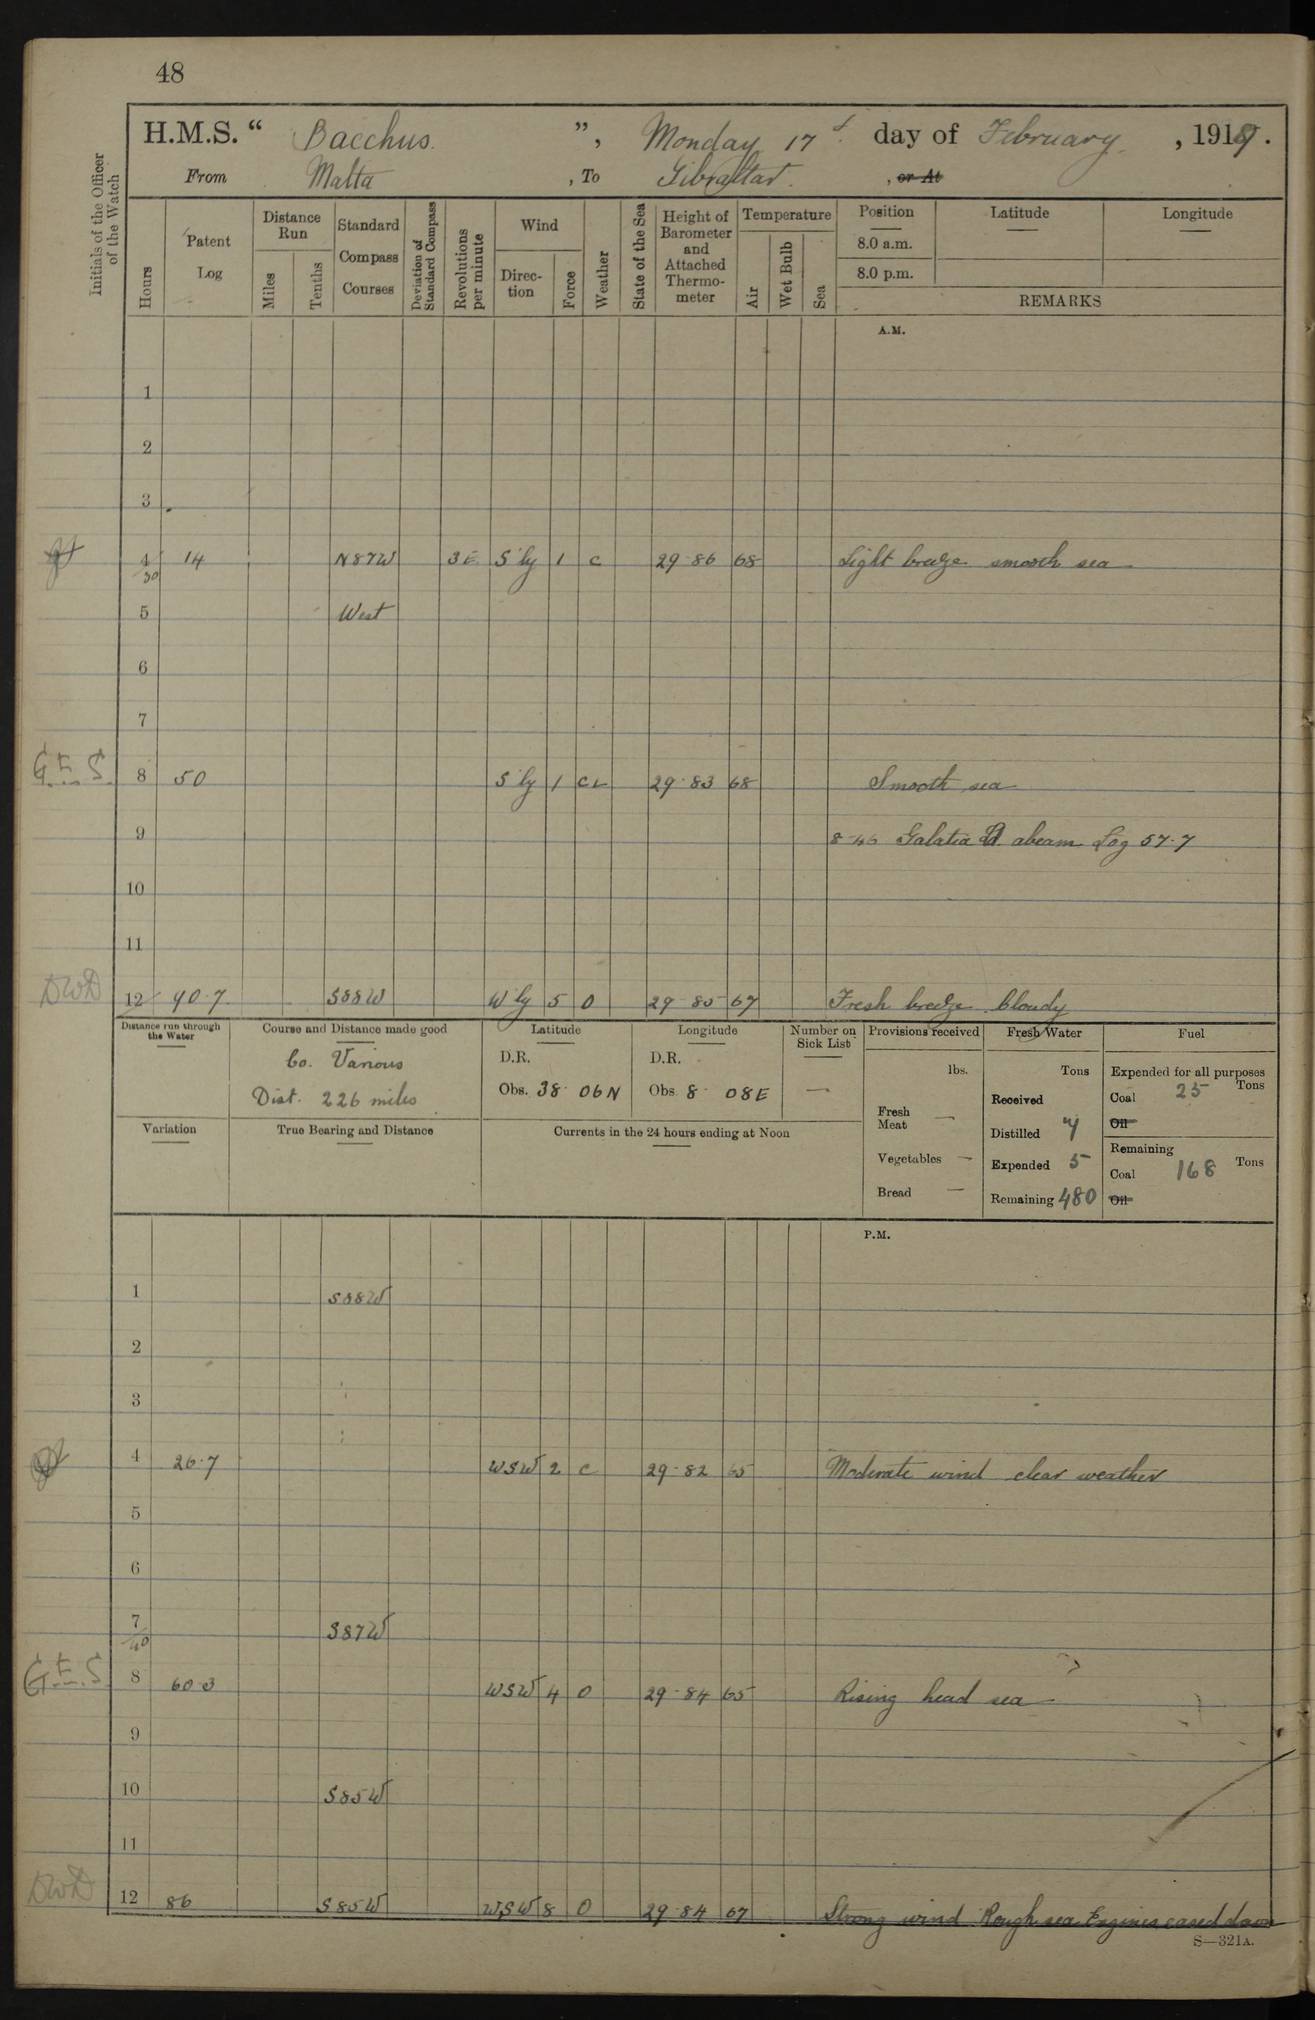 48
H.M.S. “ Bacchus. ”, Monday 17th day of February, 1919.
From Malta , To Gibraltar. , or At
Initials of the Officer of the Watch
Hours
Patent Log
Distance Run
Miles
Tenths
Standard Compass Courses
Deviation of Standard Compass
Revolutions per minute
Wind
Direction
Force
Weather
State of the Sea
Height of Barometer and Attached Thermometer
Temperature
Air
Wet Bulb
Sea
Position Latitude Longitude
8.0 a.m.
8.0 p.m.
REMARKS
A.M.
1
2
3
4/30 14 N87W 3E S'ly 1 C 29·86 68 Light breeze smooth sea
5 West
6
7
G.E.S. 8 50 S'ly 1 CL 29·83 68 Smooth sea
9 8-46 Galatia abeam Log 57.7
10
11
DWD 12 90.7 S88W W'ly 5 O 29·85 67 Fresh breeze Cloudy
Distance run through the Water
Course and Distance made good
Co. Various
Dist. 226 miles
Latitude
D.R.
Obs. 38 06N
Longitude
D.R.
Obs 8 08E
Number on Sick List
—
Provisions received
lbs.
Fresh Meat —
Vegetables —
Bread —
Fresh Water
Tons
Received
Distilled 4
Expended 5
Remaining 480
Fuel
Expended for all purposes
Coal 25 Tons
Oil
Remaining
Coal 168 Tons
Oil
Variation
True Bearing and Distance
Currents in the 24 hours ending at Noon
P.M.
1 S88W
2
3
4 26.7 WSW 2 C 29·82 65 Moderate wind clear weather
5
6
7/40 S87W
G.E.S. 8 60.3 WSW 4 O 29·84 65 Rising head sea
9
10 S85W
11
DWD 12 86 S85W WSW 8 O 29·84 67 Strong wind Rough sea Engines eased down
S—321A.